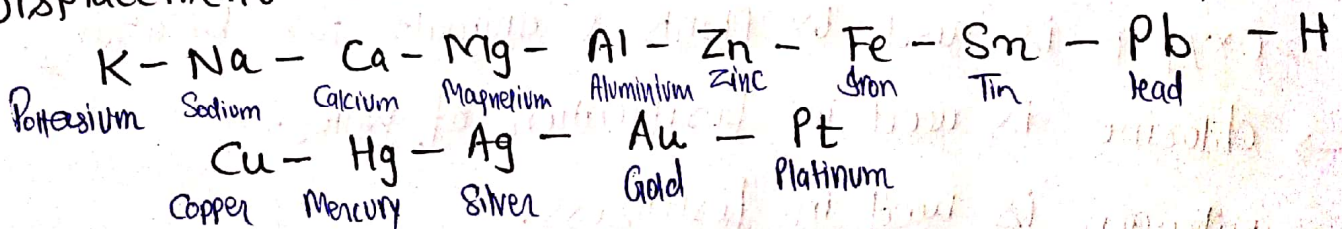 K - Na - Ca - Mg - Al - Zn - Fe - Sn - Pb - H
Pottasium Sodium Calcium Magnesium Aluminium Zinc Iron Tin lead
Cu - Hg - Ag - Au - Pt
Copper Mercury Silver Gold Platinum